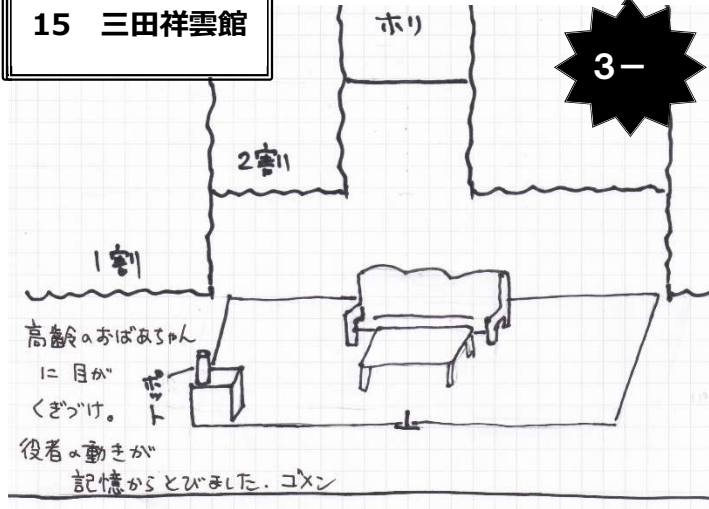 15 三田祥雲館
ホリ
3－
2割
1割
高齢のおばあちゃん
に 目が
くぎづけ。
役者の動きが
記憶からとびました. ゴメン